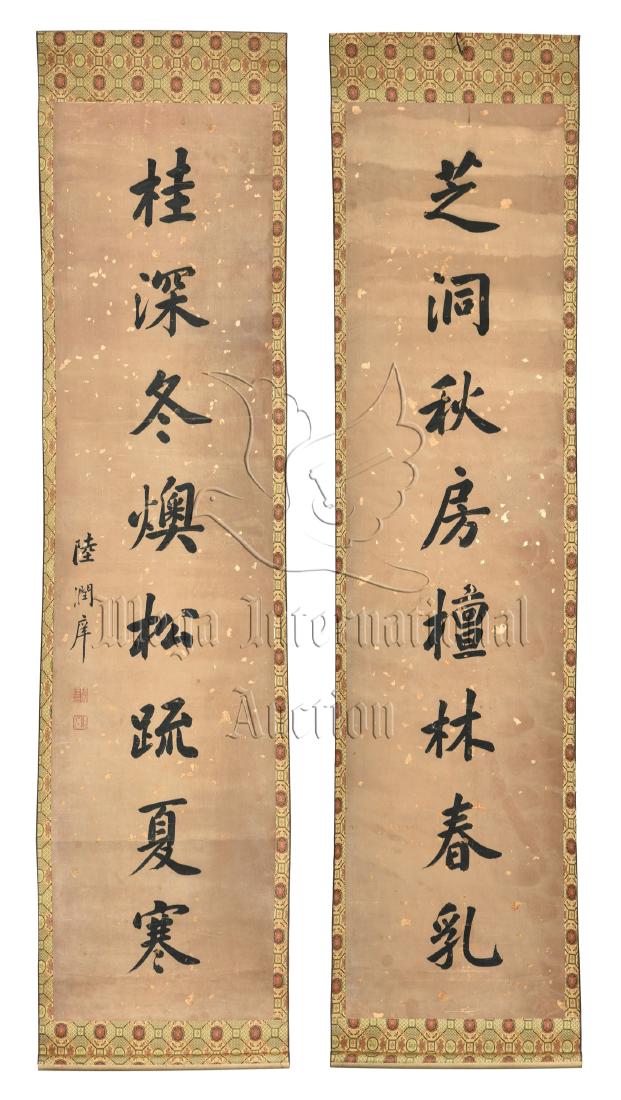 芝洞秋房檀林春乳
桂深冬燠松疏夏寒
陸潤庠
Mega International
Auction